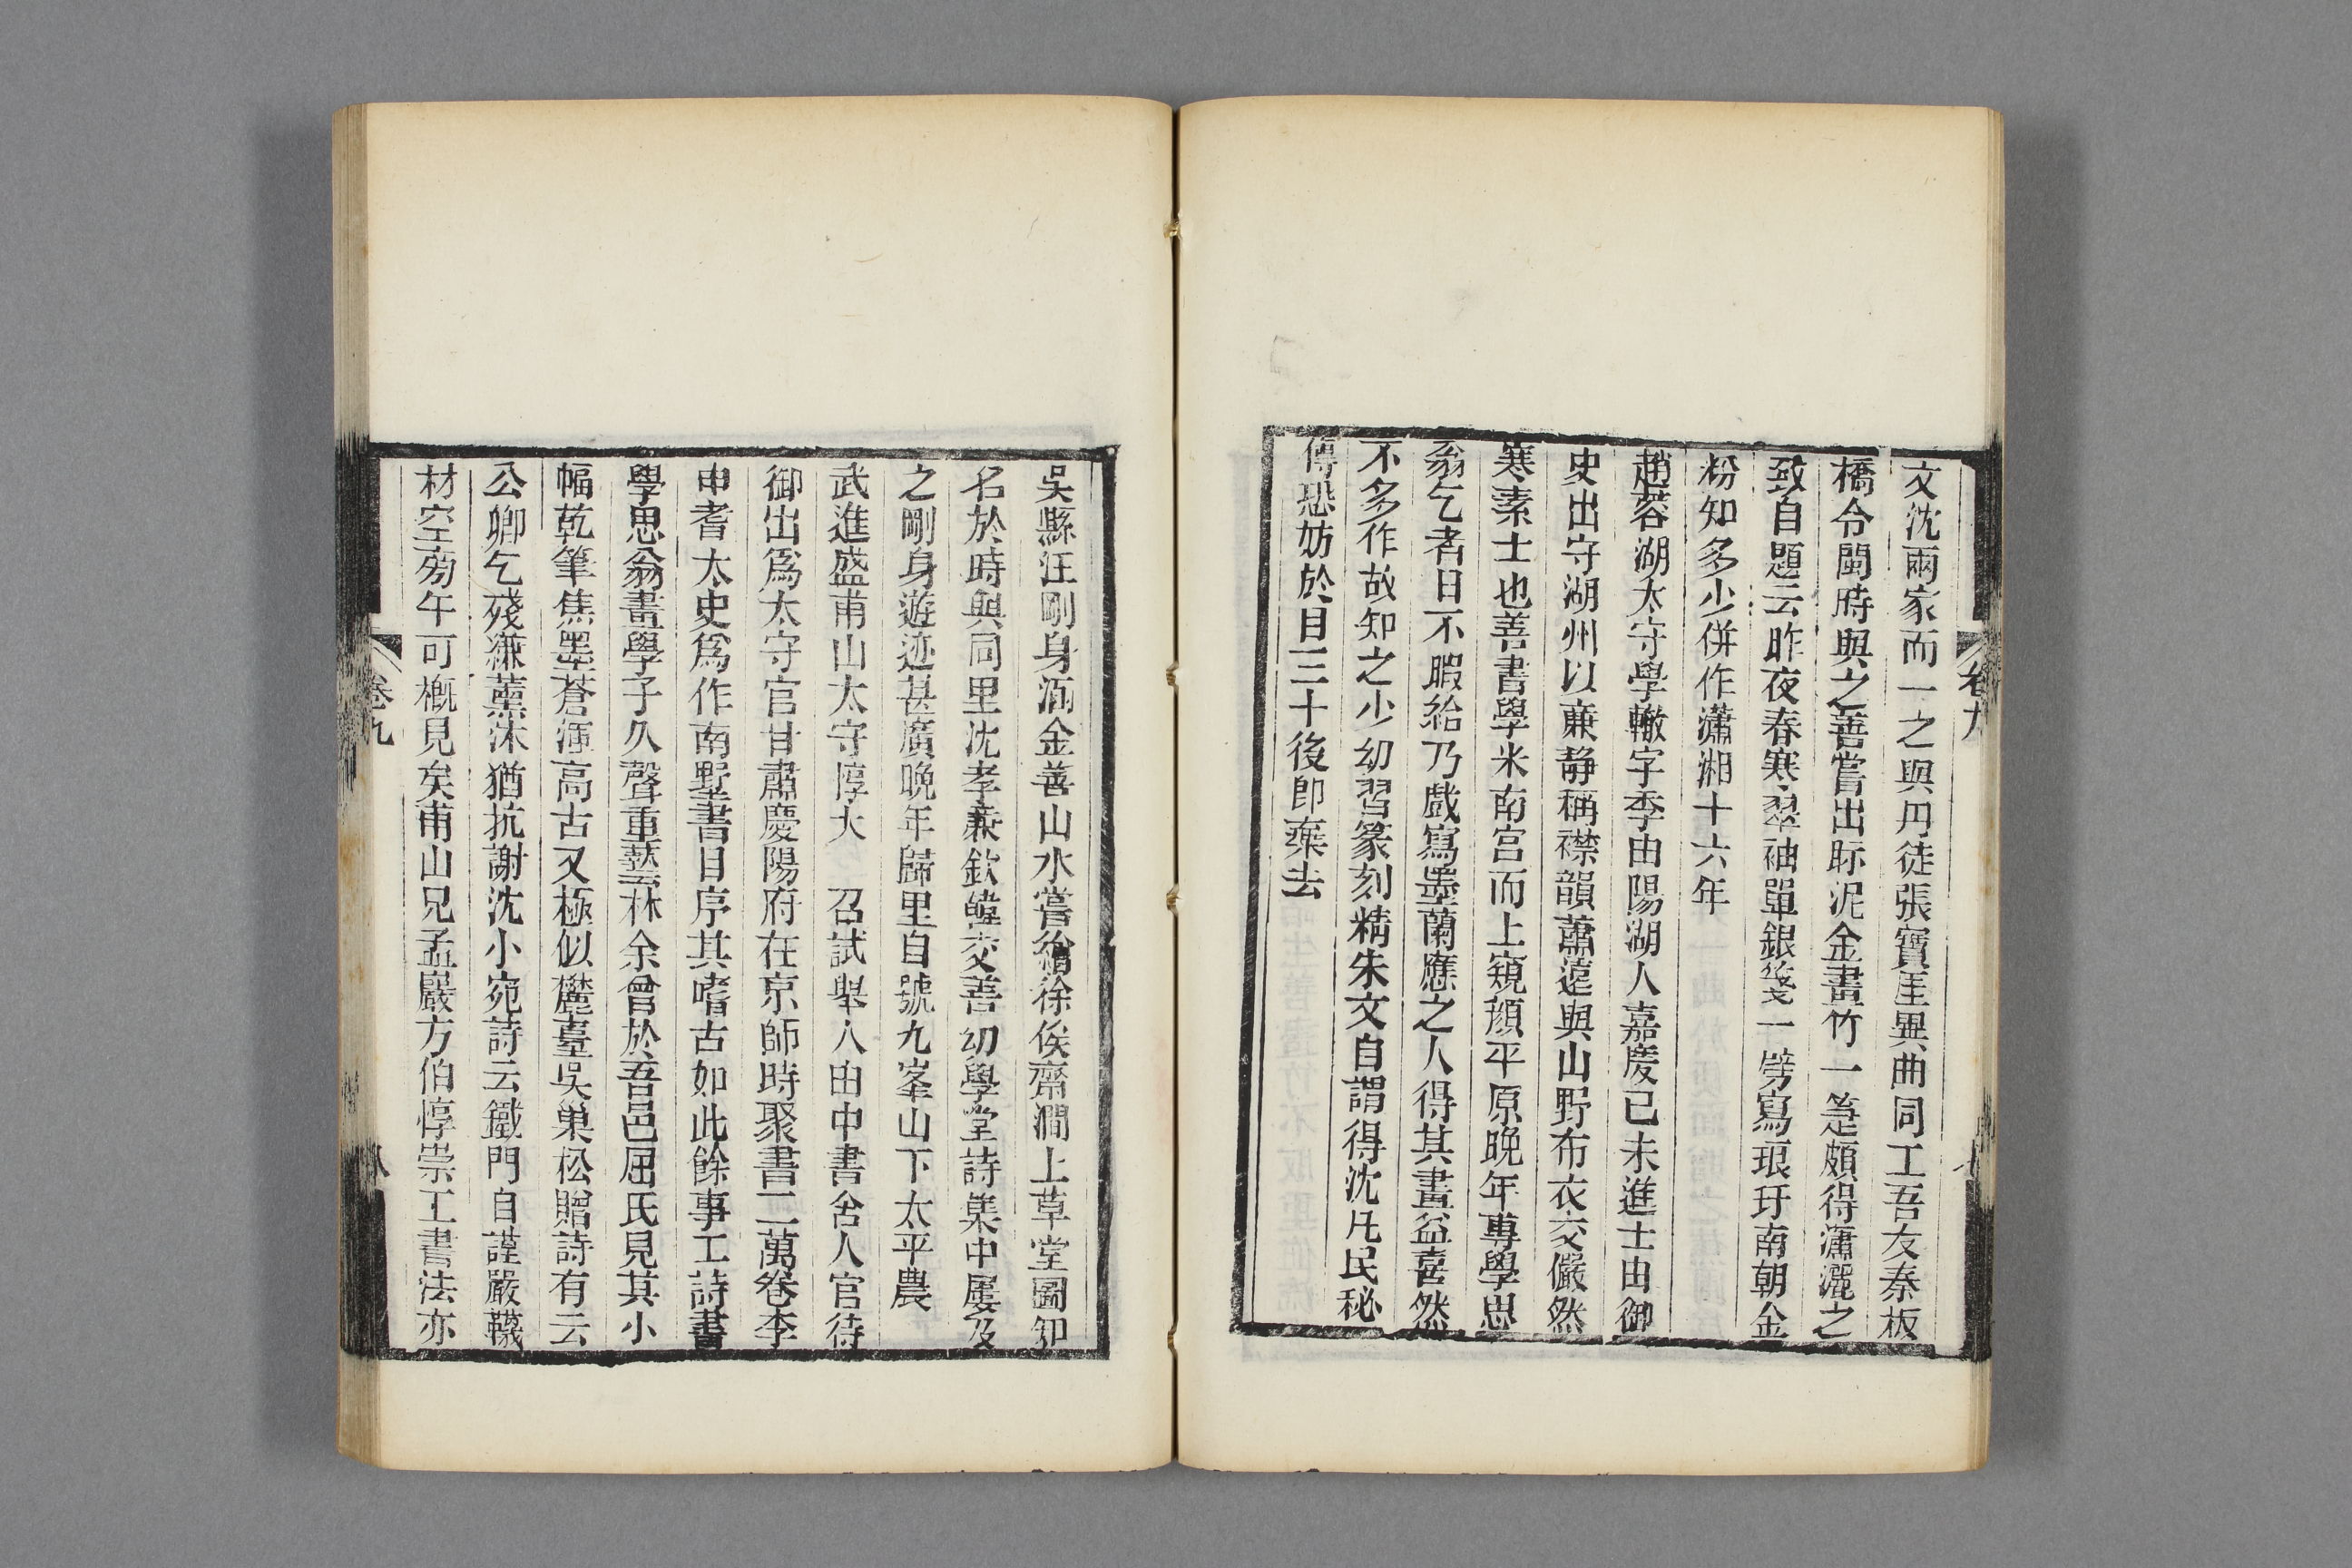 文沈兩家而一之與丹徒張寶厓異曲同工吾友秦板
橋令閩時與之善嘗出眎泥金畫竹一箑頗得瀟灑之
致自題云昨夜春寒翠袖單銀箋一劈寫琅玕南朝金
粉知多少併作瀟湘十六年
趙蓉湖太守學轍字季由陽湖人嘉慶己未進士由御
史出守湖州以亷静稱襟韻蕭遠與山野布衣交儼然
寒素士也善書學米南宮而上窺顔平原晚年專學思
翁乞者日不暇給乃戲寫墨蘭應之人得其畫益喜然
不多作故知之少幼習篆刻精朱文自謂得沈凡民秘
傳恐妨於目三十後即棄去
卷九
七
吳縣汪剛身泂金善山水嘗繪徐俟齋澗上草堂圖知
名於時與同里沈孝亷欽韓交善幼學堂詩集中屢及
之剛身遊迹甚廣晚年歸里自號九峯山下太平農
武進盛甫山太守惇大 召試舉人由中書舍人官待
御出爲太守官甘肅慶陽府在京師時聚書二萬卷李
申耆太史爲作南墅書目序其嗜古如此餘事工詩書
學思翁畫學子久聲重藝林余曾於吾邑屈氏見其小
幅乾筆焦墨蒼渾高古又極似麓臺吳巢松贈詩有云
公卿乞殘縑薰沐猶抗謝沈小宛詩云鐵門自謹嚴韈
材空旁午可概見矣甫山兄孟巖方伯惇崇工書法亦
卷九
八